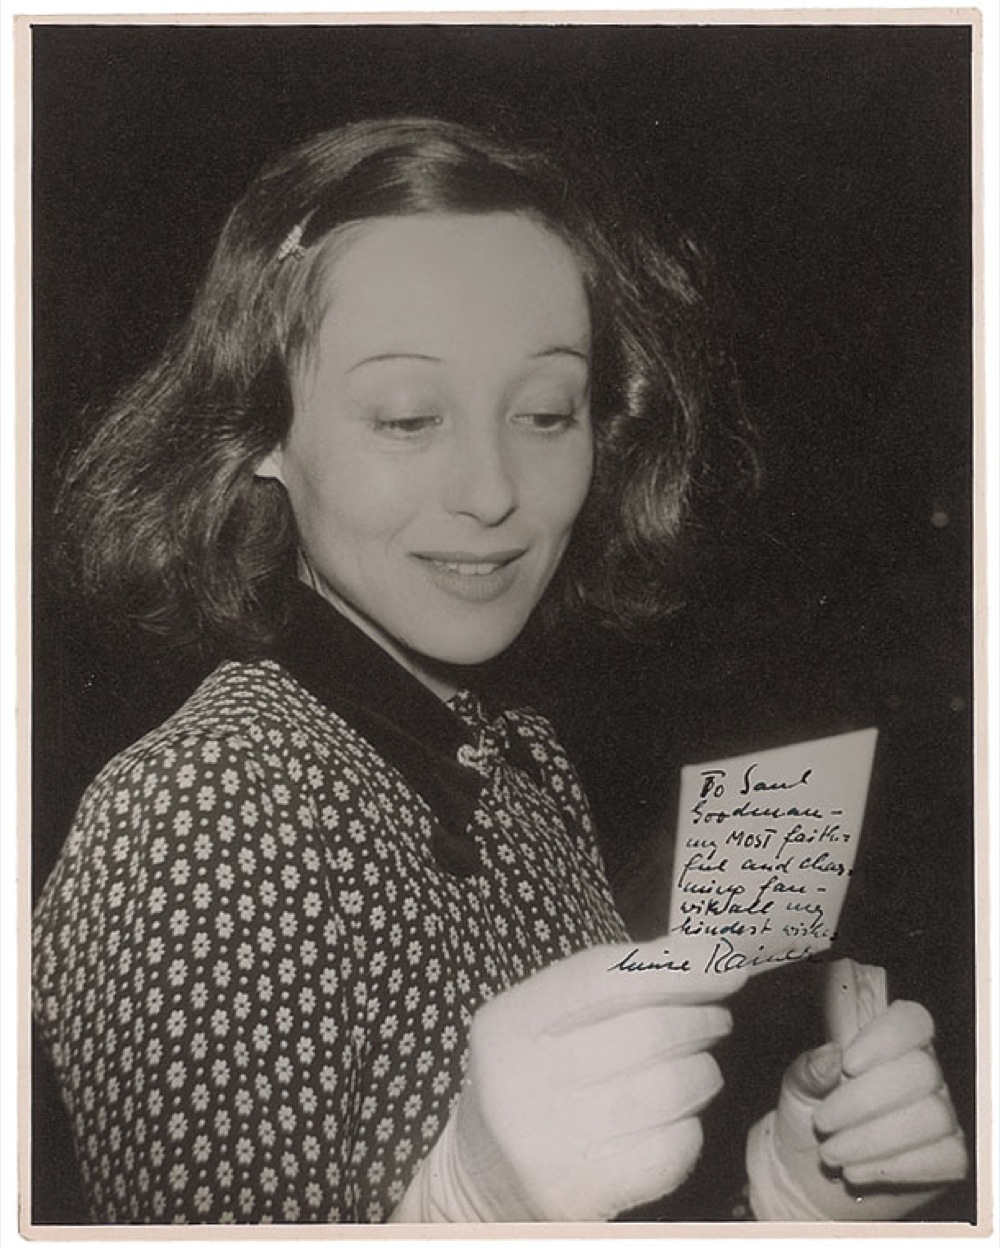 To Saul
Goodman -
my MOST faith-
ful and char-
ming fan -
with all my
kindest wishes
Luise Rainer